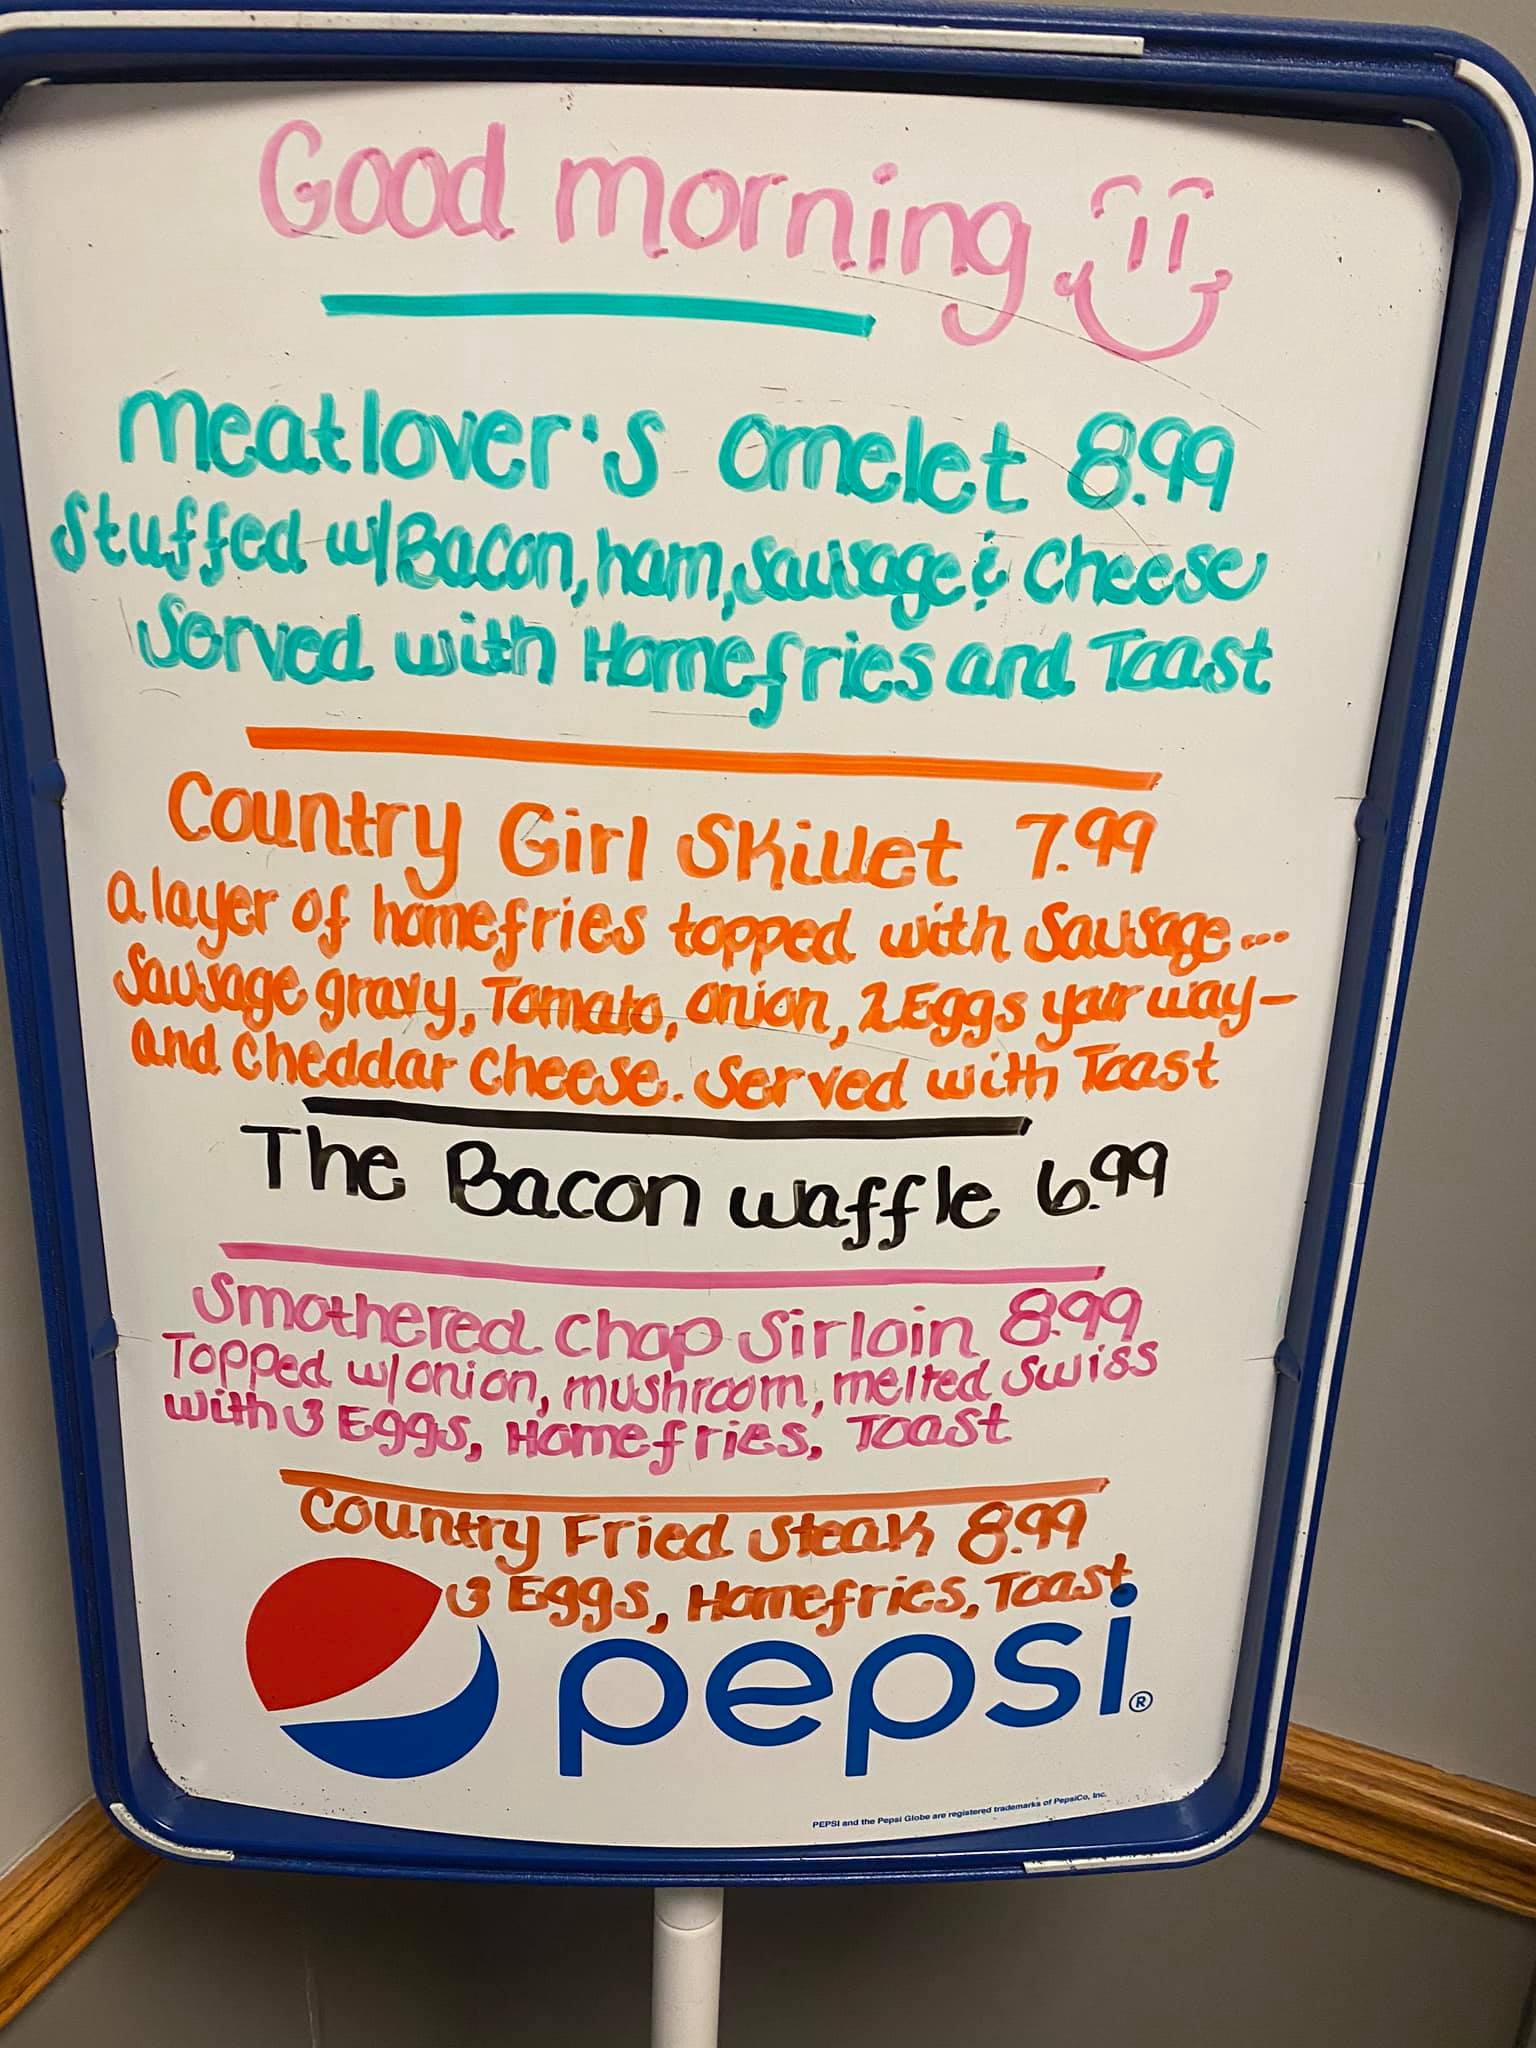 Good morning
Meatlover's Omelet 8.99
Stuffed w/Bacon, ham, Sausage & Cheese
Served with Homefries and Toast
Country Girl Skillet 7.99
a layer of homefries topped with Sausage...
Sausage gravy, Tomato, onion, 2 Eggs your way-
and cheddar cheese. Served with Toast
The Bacon waffle 6.99
Smothered Chop Sirloin 8.99
Topped w/onion, mushroom, melted Swiss
with 3 Eggs, Homefries, Toast
Country Fried Steak 8.99
3 Eggs, Homefries, Toast
pepsi®
PEPSI and the Pepsi Globe are registered trademarks of PepsiCo, Inc.